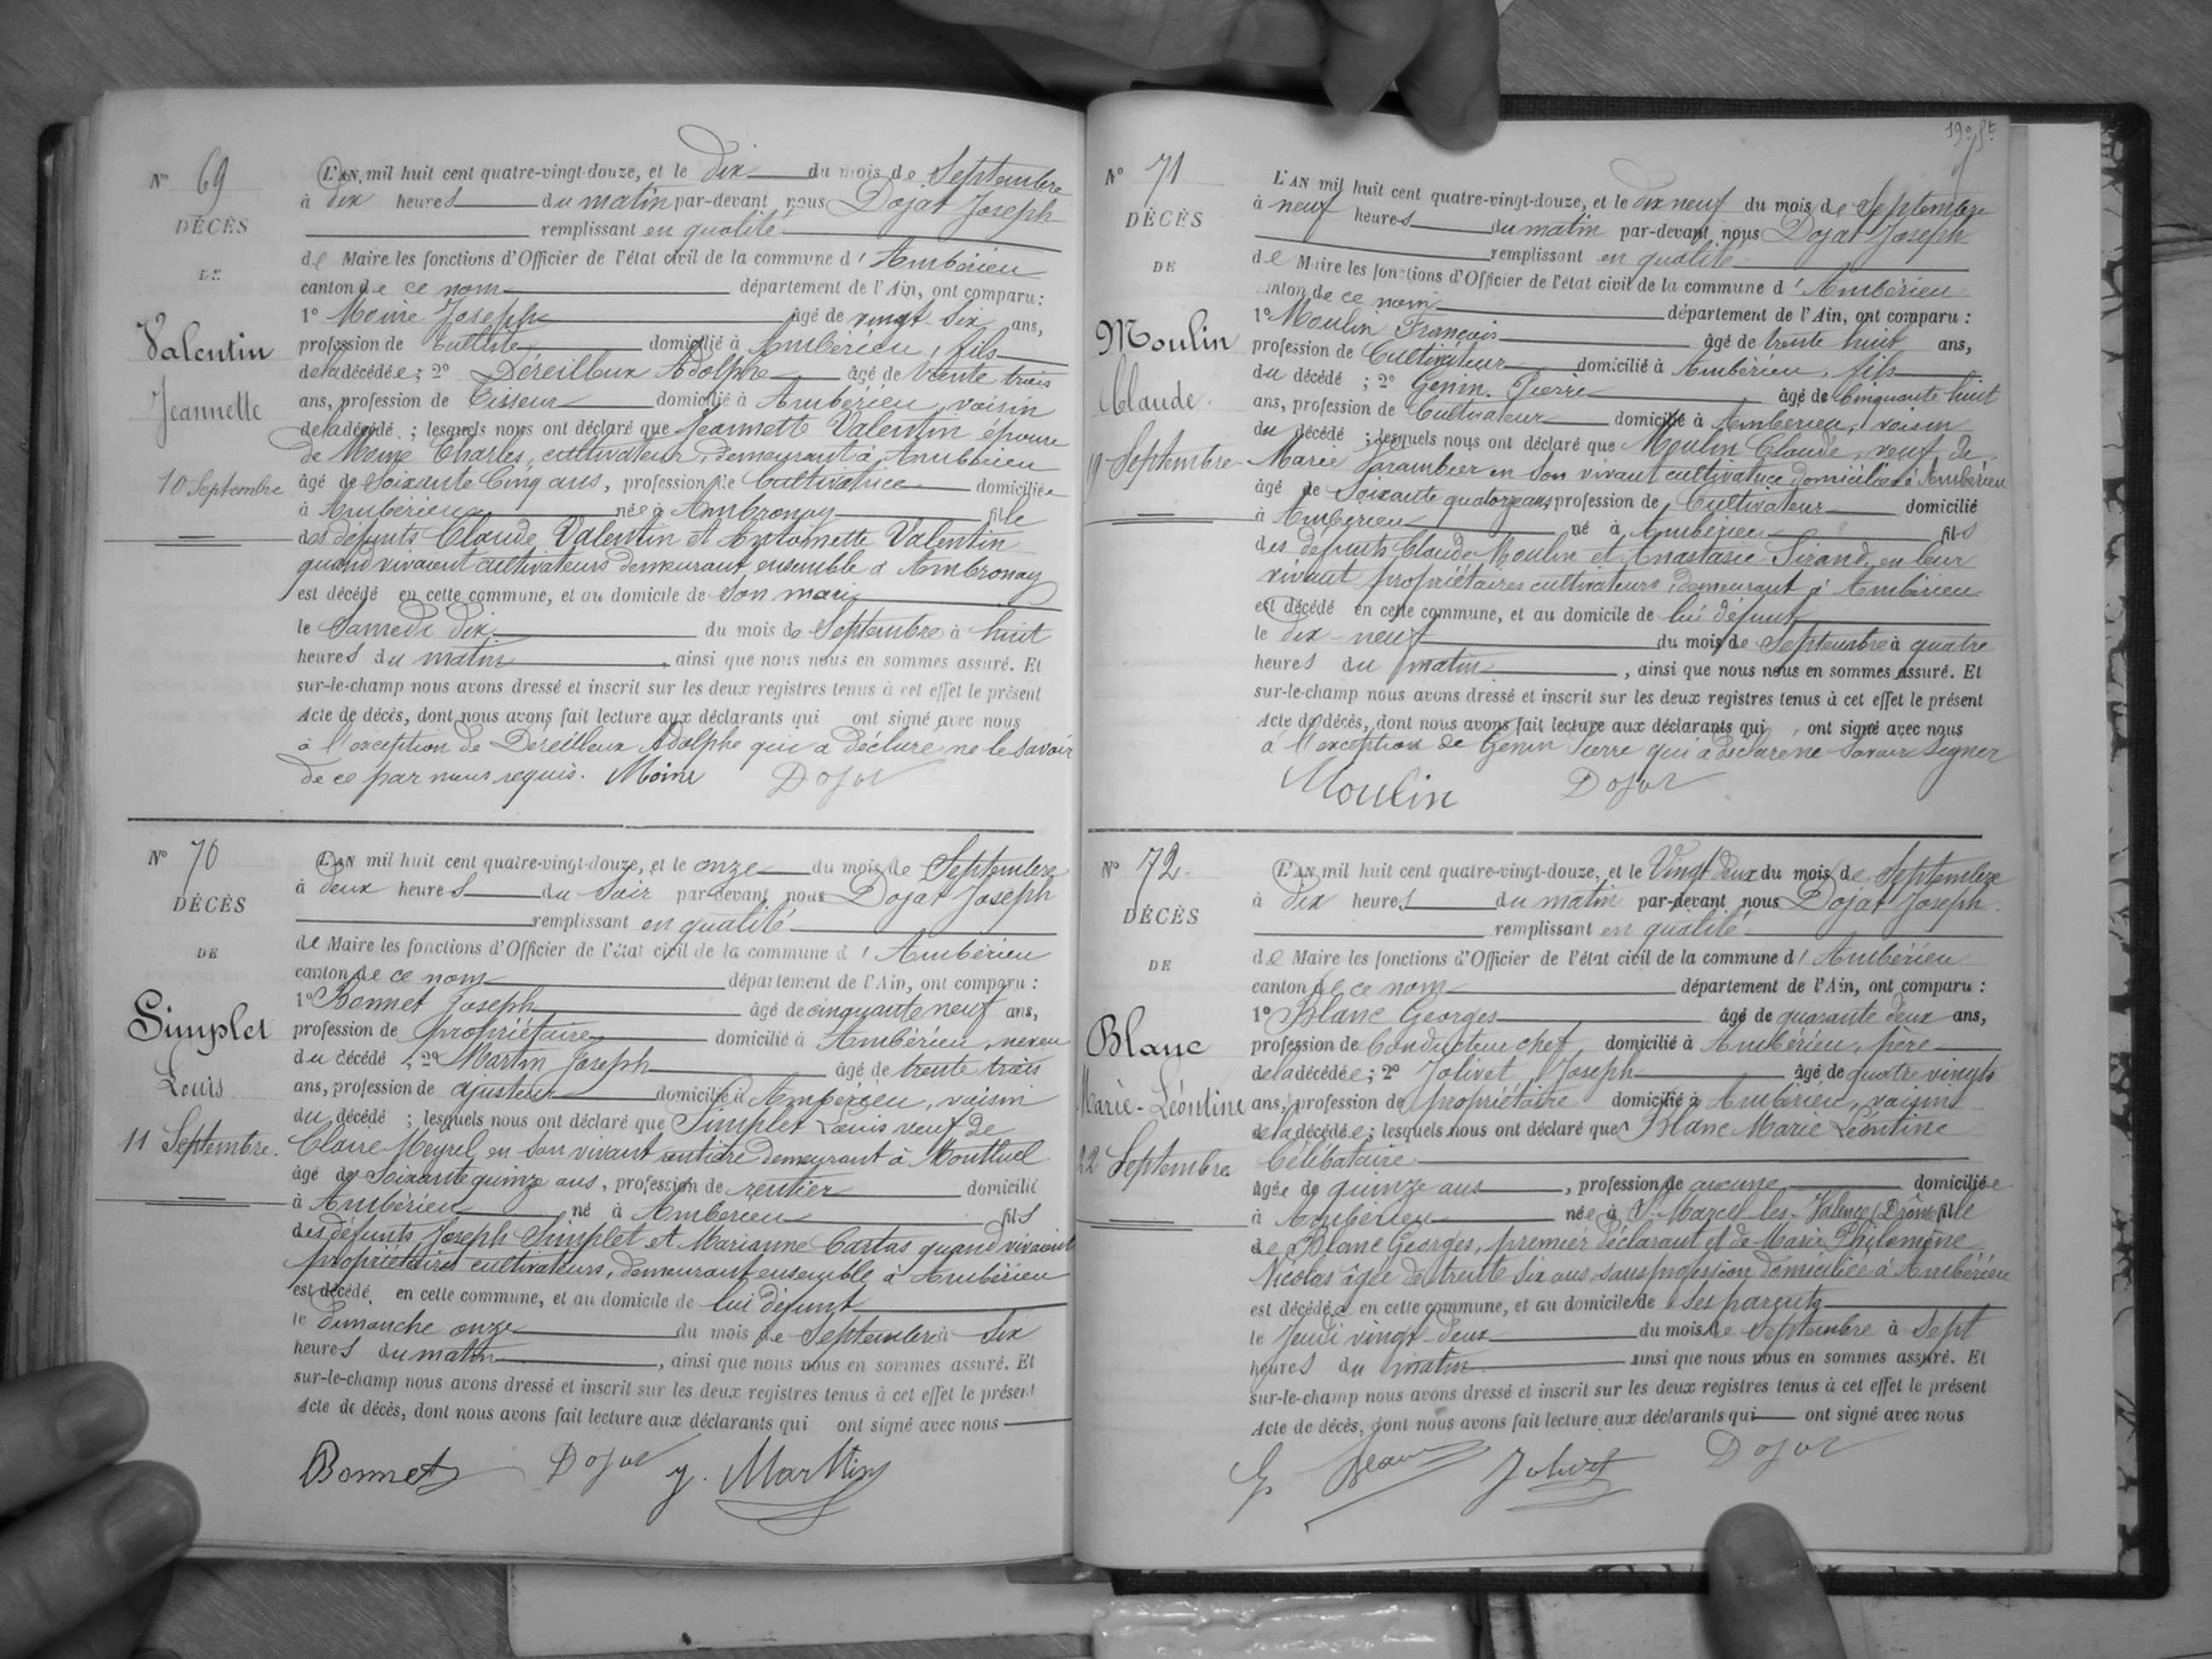 Nº 69
DÉCÈS
DE
Valentin
Jeannette
10 Septembre
L'AN mil huit cent quatre-vingt-douze, et le dix du mois de Septembre
à dix heures du matin par-devant nous Dojat Joseph
remplissant en qualité
de Maire les fonctions d'Officier de l'état civil de la commune d'Ambérieu
canton de ce nom département de l'Ain, ont comparu :
1º Moine Joseph âgé de vingt-six ans,
profession de domicilié à Ambérieu, fils
de la décédée ; 2º Déreilleux Adolphe âgé de trente trois
ans, profession de Tisseur domicilié à Ambérieu, voisin
de la décédé ; lesquels nous ont déclaré que Jeannette Valentin épouse
de Moine Charles, cultivateur, demeurant à Ambérieu
âgé de Soixante Cinq ans, profession de Cultivatrice domiciliée
à Ambérieu née à Ambronay fille
des défunts Claude Valentin et Antoinette Valentin
quand vivaient cultivateurs demeurant ensemble à Ambronay
est décédé en cette commune, et au domicile de Son mari
le Samedi dix du mois de Septembre à huit
heures du matin, ainsi que nous nous en sommes assuré. Et
sur-le-champ nous avons dressé et inscrit sur les deux registres tenus à cet effet le présent
Acte de décès, dont nous avons fait lecture aux déclarants qui ont signé avec nous
à l'exception de Déreilleux Adolphe qui a déclaré ne le savoir
de ce par nous requis. Moine Dojat
Nº 70
DÉCÈS
DE
Simplet
Louis
11 Septembre.
L'AN mil huit cent quatre-vingt-douze, et le onze du mois de Septembre
à deux heures du Soir par-devant nous Dojat Joseph
remplissant en qualité
de Maire les fonctions d'Officier de l'état civil de la commune d'Ambérieu
canton de ce nom département de l'Ain, ont comparu :
1º Bonnet Joseph âgé de cinquante neuf ans,
profession de propriétaire domicilié à Ambérieu, neveu
du décédé ; 2º Martin Joseph âgé de trente trois
ans, profession de ajusteur domicilié à Ambérieu, voisin
du décédé ; lesquels nous ont déclaré que Simplet Louis veuf de
Claire Meyrel, en son vivant rentière demeurant à Montluel
âgé de Soixante quinze ans, profession de rentier domicilié
à Ambérieu né à Ambérieu fils
des défunts Joseph Simplet et Marianne Cartas quand vivaient
propriétaires cultivateurs, demeurant ensemble à Ambérieu
est décédé en cette commune, et au domicile de lui défunt
le dimanche onze du mois de Septembre à Six
heures du matin, ainsi que nous nous en sommes assuré. Et
sur-le-champ nous avons dressé et inscrit sur les deux registres tenus à cet effet le présent
Acte de décès, dont nous avons fait lecture aux déclarants qui ont signé avec nous
Bonnet Dojat J. Martin
Nº 71
DÉCÈS
DE
Moulin
Claude.
19 Septembre.
L'AN mil huit cent quatre-vingt-douze, et le dix neuf du mois de Septembre
à neuf heures du matin par-devant nous Dojat Joseph
remplissant en qualité
de Maire les fonctions d'Officier de l'état civil de la commune d'Ambérieu
canton de ce nom département de l'Ain, ont comparu :
1º Moulin François âgé de trente huit ans,
profession de Cultivateur domicilié à Ambérieu, fils
du décédé ; 2º Genin Pierre âgé de Cinquante huit
ans, profession de Cultivateur domicilié à Ambérieu, voisin
du décédé ; lesquels nous ont déclaré que Moulin Claude, veuf de
Marie Jarambier en son vivant cultivatrice domiciliée à Ambérieu
âgé de Soixante quatorze ans, profession de Cultivateur domicilié
à Ambérieu né à Ambérieu fils
des défunts Claude Moulin et Anastasie Sirand, en leur
vivant propriétaires cultivateurs, demeurant à Ambérieu
est décédé en cette commune, et au domicile de lui défunt
le dix-neuf du mois de Septembre à quatre
heures du matin, ainsi que nous nous en sommes assuré. Et
sur-le-champ nous avons dressé et inscrit sur les deux registres tenus à cet effet le présent
Acte de décès, dont nous avons fait lecture aux déclarants qui ont signé avec nous
à l'exception de Genin Pierre qui a déclaré ne savoir signer
Moulin Dojat
Nº 72.
DÉCÈS
DE
Blanc
Marie-Léontine
22 Septembre
L'AN mil huit cent quatre-vingt-douze, et le Vingt deux du mois de Septembre
à dix heures du matin par-devant nous Dojat Joseph.
remplissant en qualité
de Maire les fonctions d'Officier de l'état civil de la commune d'Ambérieu
canton de ce nom département de l'Ain, ont comparu :
1º Blanc Georges âgé de quarante deux ans,
profession de Conducteur chef domicilié à Ambérieu, père
de la décédée ; 2º Jolivet Joseph âgé de quatre vingts
ans, profession de propriétaire domicilié à Ambérieu, voisin
de la décédée ; lesquels nous ont déclaré que Blanc Marie Léontine
Célibataire
âgée de quinze ans, profession de aucune domiciliée
à Ambérieu née à St Marcel-les-Valence (Drôme) fille
de Blanc Georges, premier déclarant et de Marie Philomène
Nicolas âgée de trente six ans, sans profession domiciliée à Ambérieu
est décédée en cette commune, et au domicile de ses parents
le Jeudi vingt-deux du mois de Septembre à Sept
heures du matin ainsi que nous nous en sommes assuré. Et
sur-le-champ nous avons dressé et inscrit sur les deux registres tenus à cet effet le présent
Acte de décès, dont nous avons fait lecture aux déclarants qui ont signé avec nous
Jolivet Dojat